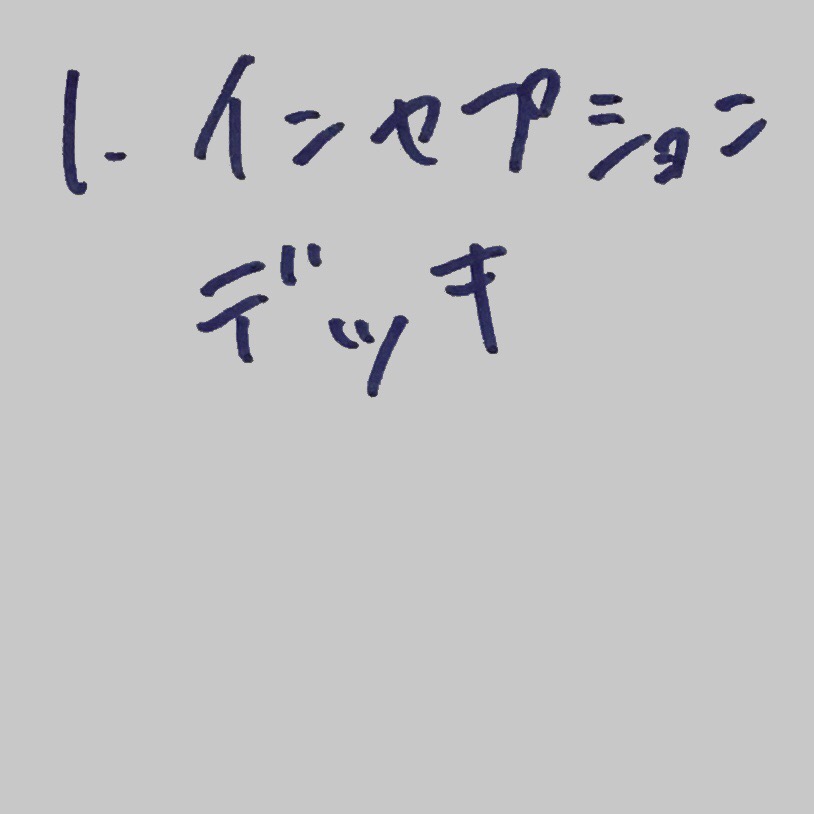 1. インセプション
デッキ